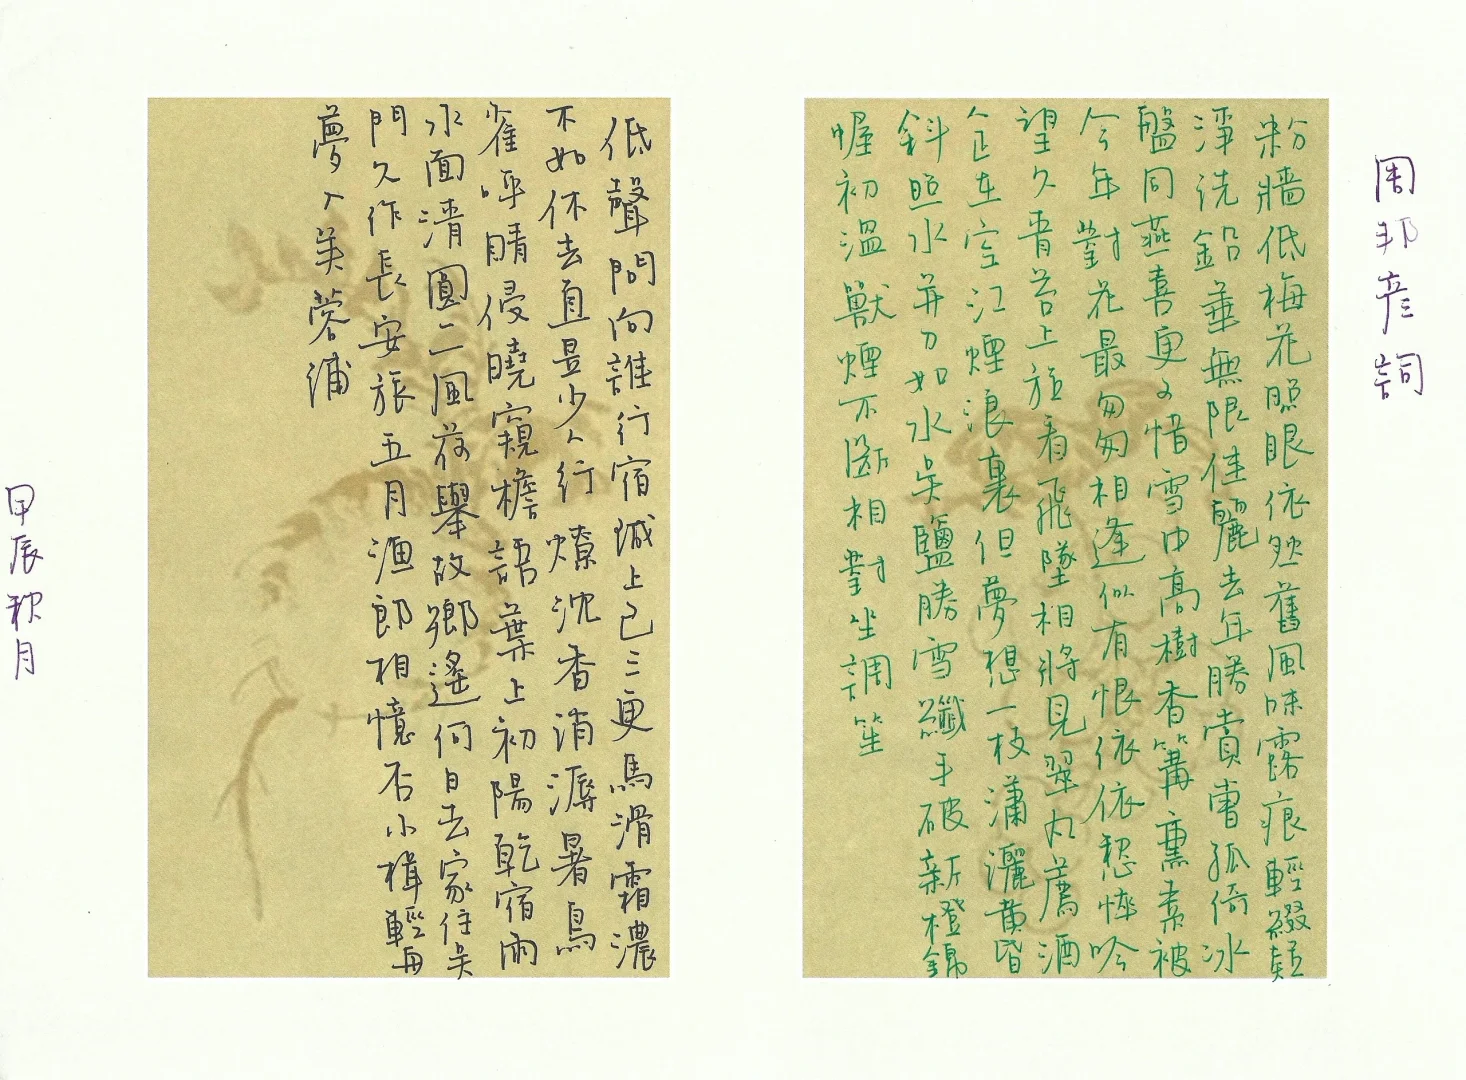 周邦彥詞
粉牆低梅花照眼依然舊風味露痕輕綴疑
淨洗鉛華無限佳麗去年勝賞曾孤倚冰
盤同燕喜更可惜雪中高樹香篝熏素被
今年對花最匆匆相逢似有恨依依愁悴吟
望久青苔上旋看飛墜相將見翠丸薦酒
人正在空江煙浪裏但夢想一枝瀟灑黃昏
斜照水并刀如水吳鹽勝雪纖手破新橙錦
幄初溫獸煙不斷相對坐調笙
低聲問向誰行宿城上已三更馬滑霜濃
不如休去直是少人行燎沈香消溽暑鳥
雀呼晴侵曉窺檐語葉上初陽乾宿雨
水面清圓一一風荷舉故鄉遙何日去家住吳
門久作長安旅五月漁郎相憶否小楫輕舟
夢入芙蓉浦
甲辰秋月